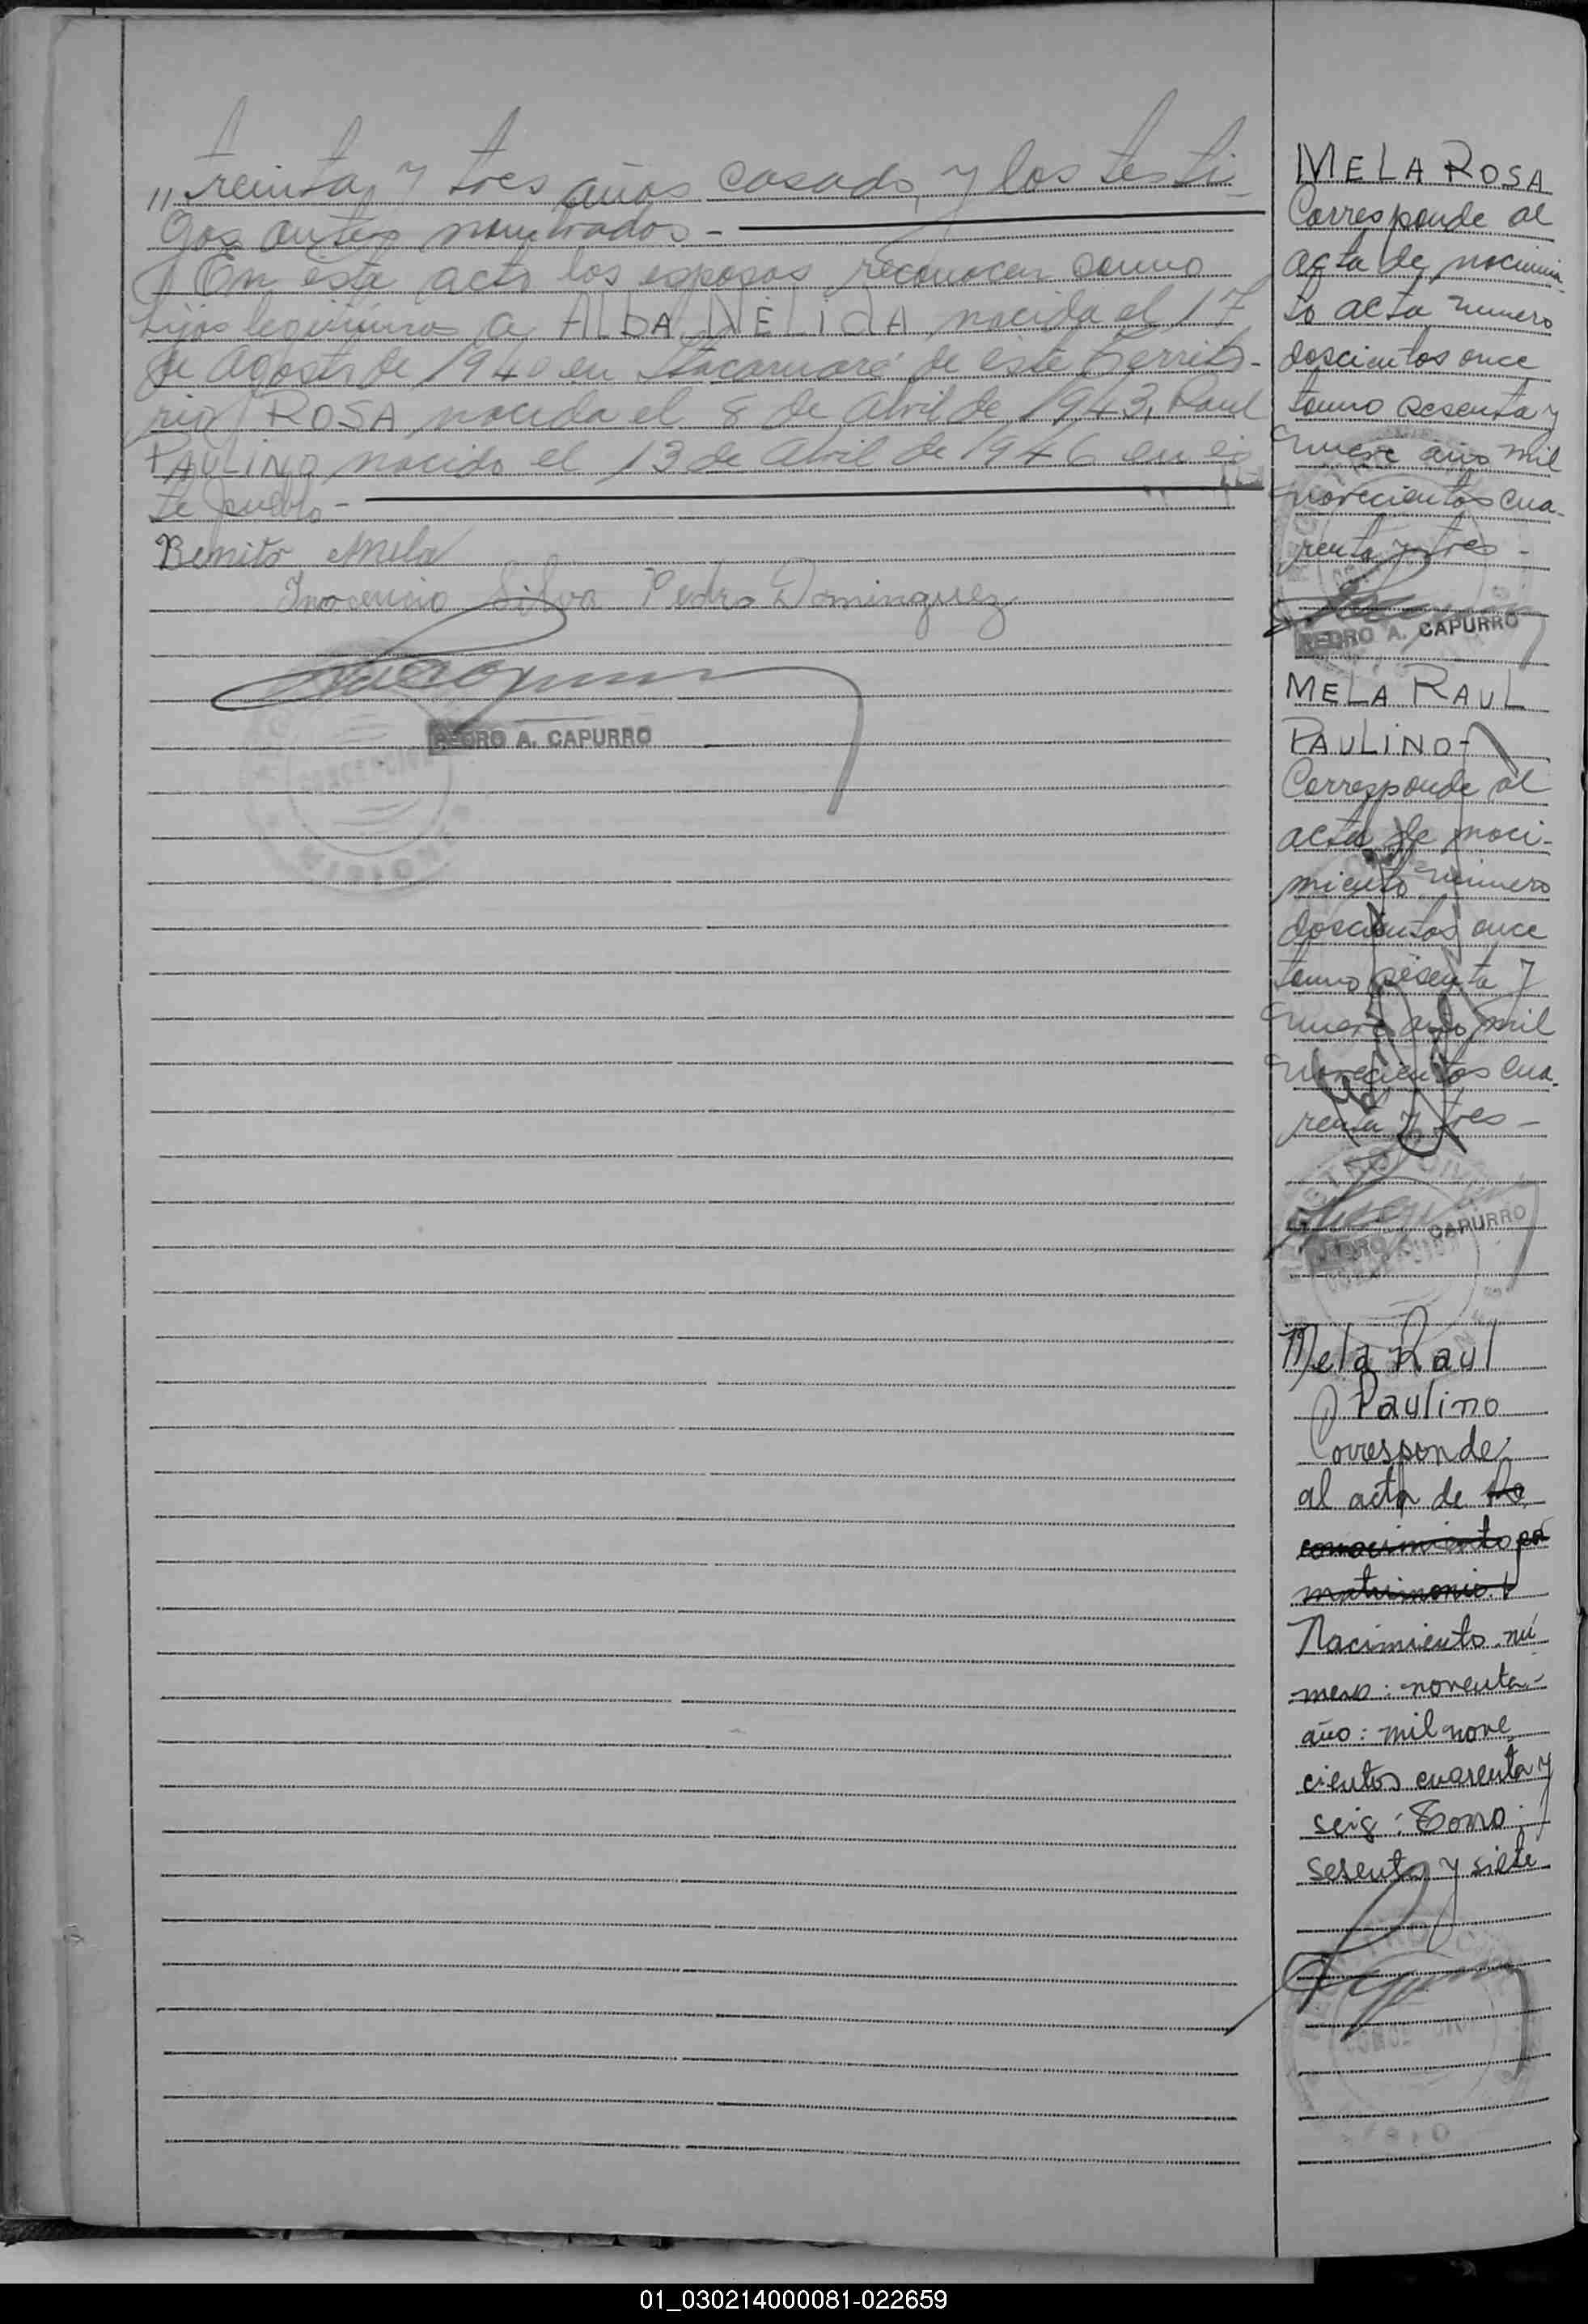 " treinta y tres años casado, y los testi-
gos antes nombrados -
En este acto los esposos reconocen como
hijos legítimos a ALDA NÉLIDA nacida el 17
de Agosto de 1940 en Itacaruaré de este Territo-
rio ROSA nacida el 8 de Abril de 1943, Raul
PAULINO nacido el 13 de Abril de 1946 en es
te pueblo -
Benito Mela
Inocencio Silva Pedro Dominguez
PEDRO A. CAPURRO
CONCEPCION
MISIONES
MELA ROSA
Corresponde al
acta de nacimien
to acta numero
doscientos once
tomo sesenta y
nueve año mil
novecientos cua-
renta y tres -
PEDRO A. CAPURRO
MELA RAUL
PAULINO -
Corresponde al
acta de naci-
miento numero
doscientos once
tomo sesenta y
nueve año mil
novecientos cua-
renta y tres -
PEDRO CAPURRO
Mela Raul
Paulino
Corresponde
al acta de Re
conocimiento por
matrimonio.
Nacimiento nú
mero: noventa -
año: mil nove
cientos cuarenta y
seis: Tomo:
sesenta y siete
01_030214000081-022659